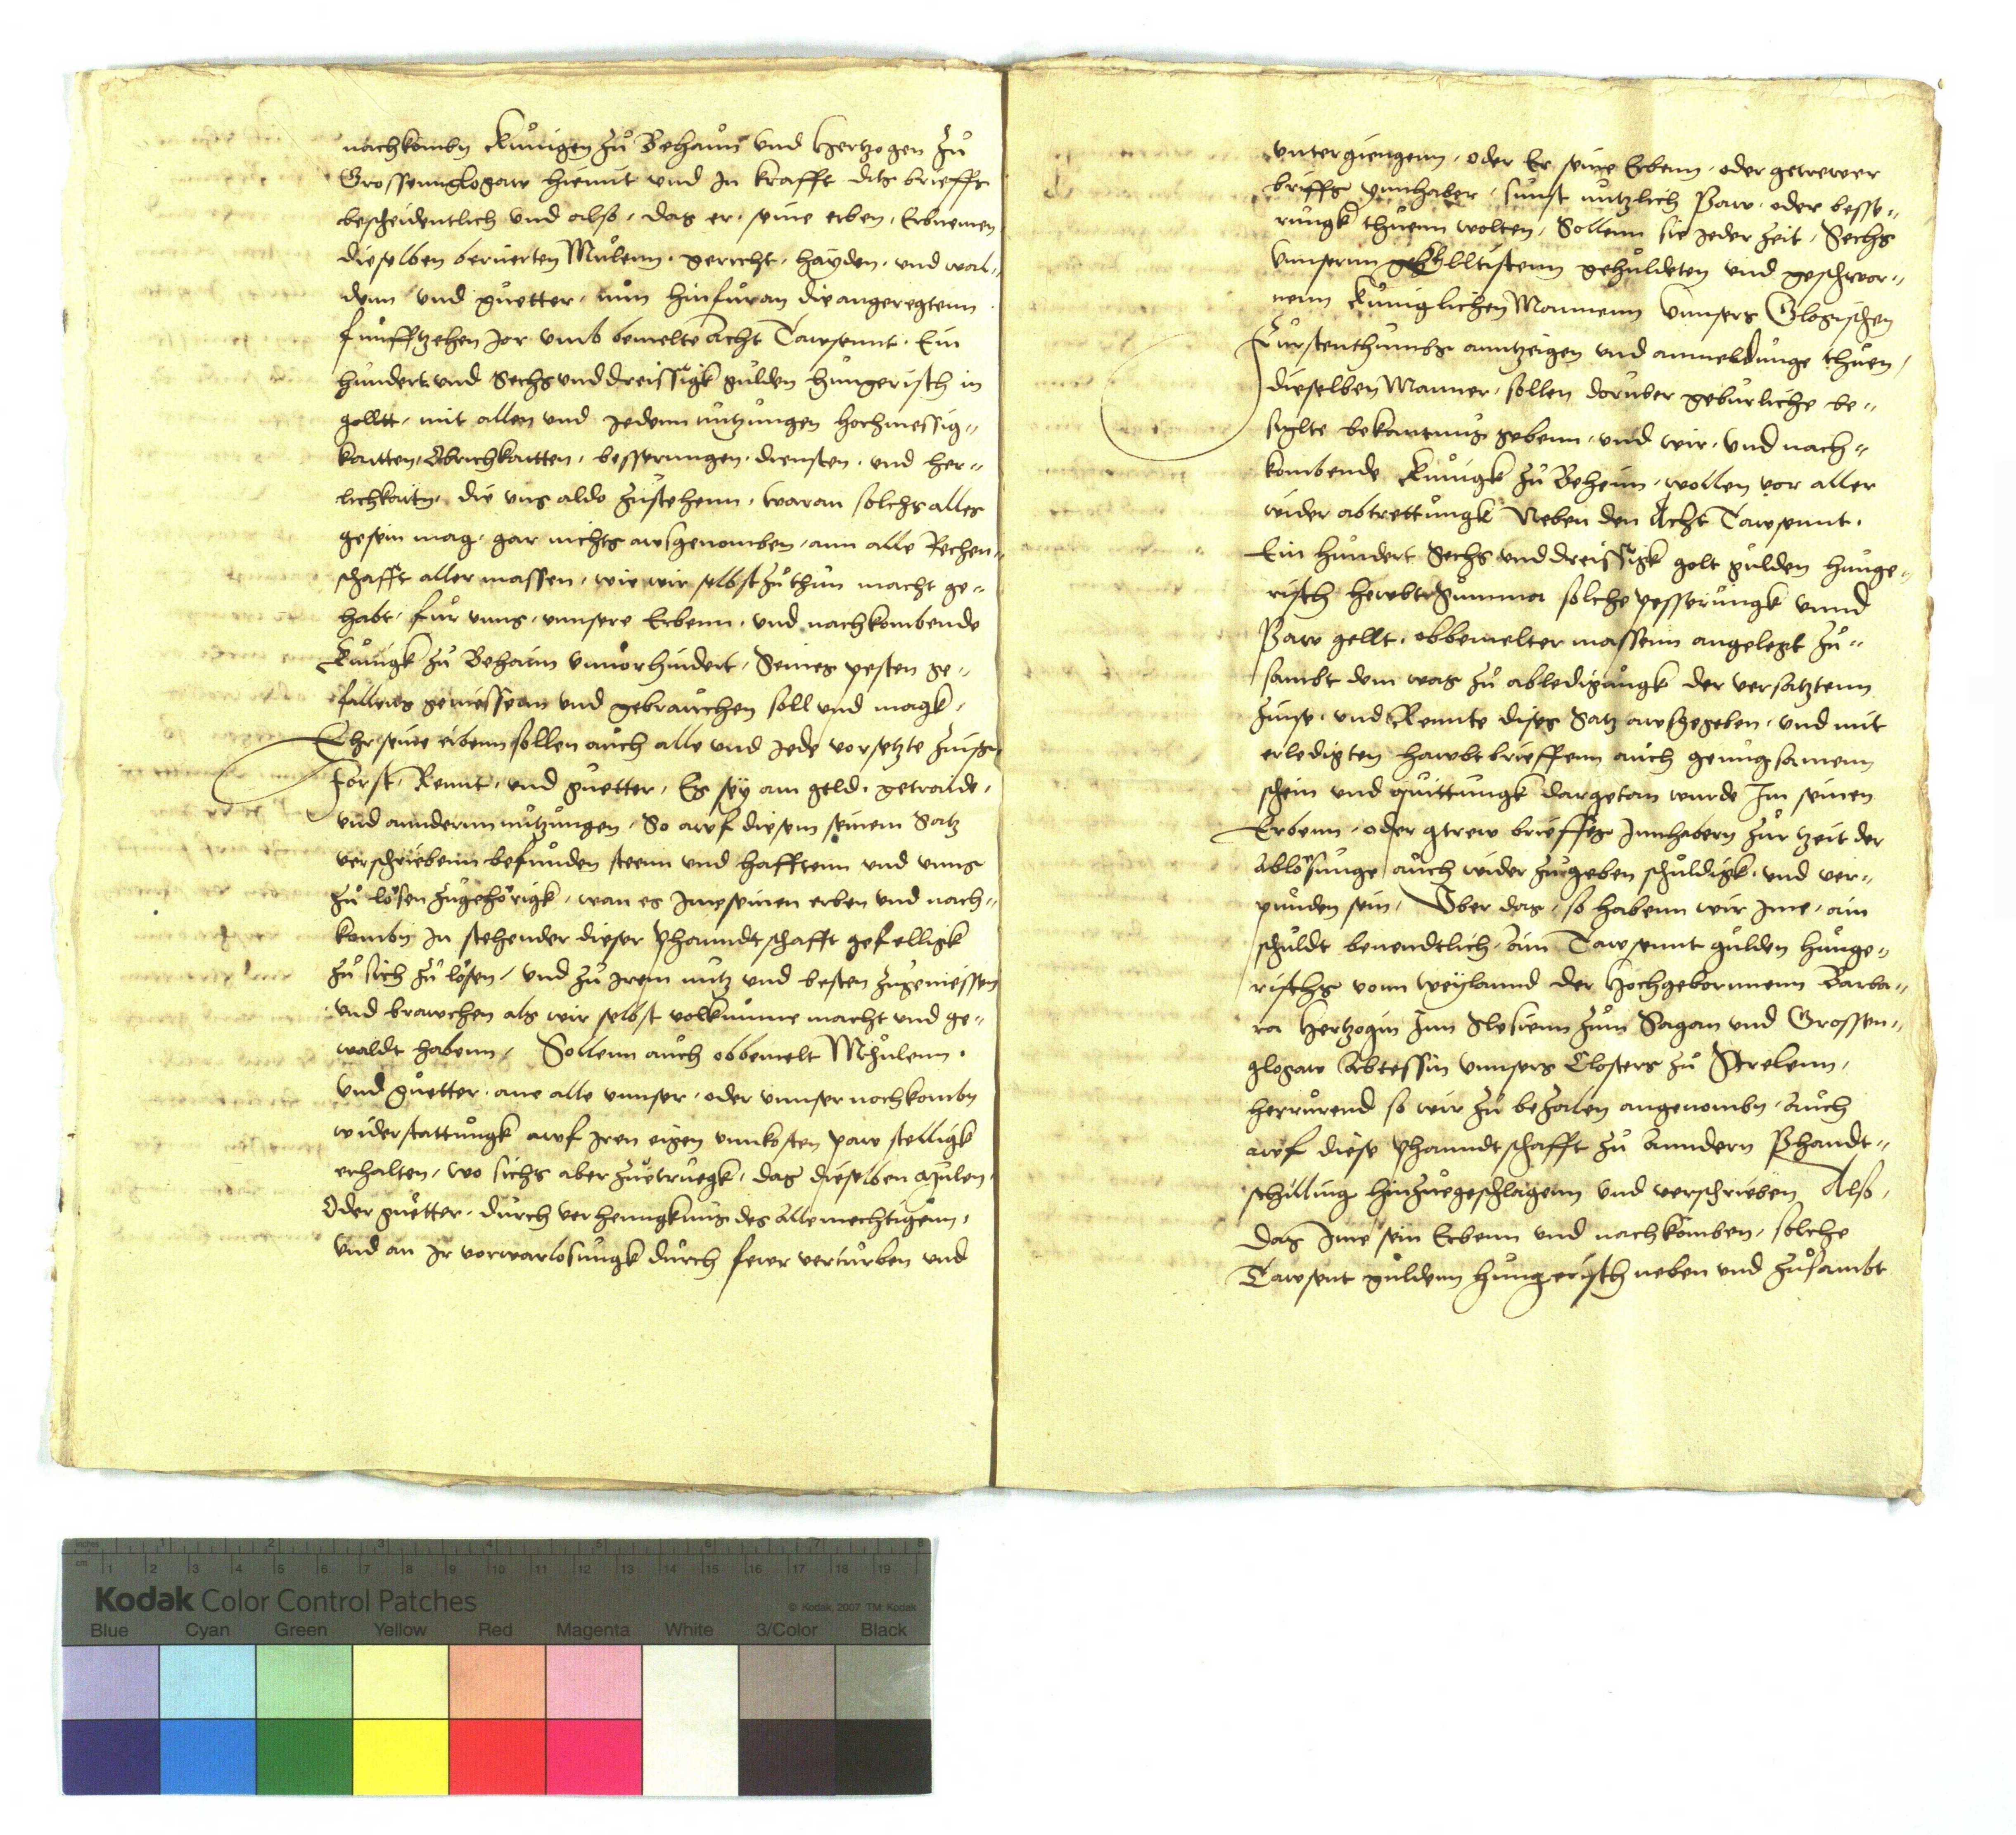 nachkombn Kunigen zu Behaim vnd Hertzogen zu
Grossennglogaw hiemit vnd in krafft dits brieffs
bescheidentlich vnd also, das er, seine erben, Erbnemen
dieselben beruerten Mulenn, gericht, hayden, vnd wel„
denn vnd guetter, nun hinfuran die angeregtenn
funfftzehen Jor vmb bemelte Acht Tawsennt, Ein
hundert vnd Sechs vnd dreissigk gulden hungerisch in
golltt, mit allen vnd jedenn nutzungen hochmessig„
kaitten, Obrichkaitten, besserungen, diensten, vnd her„
lichkaitn, die vns aldo zustehenn, waran solchs alles
gesein mag, gar nichts awsgenomben, ann alle Rechen„
schafft aller massen, wie wir selbst zuthun macht ge„
habt, fur vnns, vnnsere Erbenn, vnd nachkombende
Kunigk zu Behaim vnuorhindert, Seines pesten ge„
fallens geniessenn vnd gebrauchen soll vnd magk,
Ehr seine erbenn sollen auch alle vnd jede vorsetzte Zinse
Forst, Rennt, vnd guetter, Es sey am geld, getraide,
vnd annderenn nutzungen, So awf diesem seinem Satz
verschriebenn befunden steenn vnd hafftenn vnd vnns
zu losen zugehorigk, wan es jme seinen erben vnd nach„
kombn in stehender dieser Phanndtschafft gefelligk
zu sich zu losen, vnd zu jrem nutz vnd besten zugeniessen
vnd brawchen als wir selbst volkumne macht vnd ge„
waldt habenn, Sollenn auch obbemelt Mhulenn,
vnd guetter, ane alle vnnser, oder vnnser nochkombn
widerstattungk awf jren eigen vnnkosten paw stelligk
erhalten, wo sichs aber zutruegk, das dieselben Mulen,
Oder guetter, durch verhenngknus des Allmechtigenn,
vnd an jr vorwarlosungk durch fewr verturben vnd
vntergiengenn, oder Er seine Erbenn, oder getrewer
briffs ynnhaber, sunst nutzlich Paw, oder besse„
rungk thuenn wolten, Sollenn sie jeder zeit, Sechs
vnnserenn gehulldeten vnd geschwor„
nenn Kuniglichen Mannenn vnnsers Glogischen
Furstenthumbs anntzeigen vnd anmeldunge thuen,
dieselben Manner, sollen doruber geburliche be„
siglte bekantnus gebenn, vnd wir, vnd nach„
kombende Kunigk zu Beheim, wollen vor aller
wider abtrettungk Neben den Acht Tawsennt,
Ein hundert Sechs vnd dreissigk golt gulden hunge„
risch hewbtsumma solche pesserungk vnnd
Paw gellt, obbemelter massenn angelegt zu„
sambt dem was zu abledigungk der versatztenn
Zinse, vnd Rennte dises Satz awsgegeben, vnd mit
erledigten hawbtbrieffenn auch genugsamenn
schein vnd quittungk dargetan wurde Im seinen
Erbenn, oder gtrew brieffes Innhabern zur tzeit der
Ablosunge auch wider zugeben schuldigk, vnd ver„
punden sein, Vber das, so habenn wir jme, ain
schuldt benendtlich, Ain Tawsennt gulden hunge„
rischs vonn weylannd der Hochgebornnenn Barba„
ra Hertzogin Inn Slesienn zum Sagan vnd Grossen„
glogaw Abtessin vnnsers Closters zu Strelenn,
herrurend so wir zu bezalen angenombn, Auch
awf diese Phanndtschafft zu Anndern Phandt„
schilling hinzugeschlagenn vnd verschrieben Also,
Das jme sein Erbenn vnd nachkomben, solche
Tawsent guldenn hungerisch neben vnd zusambt